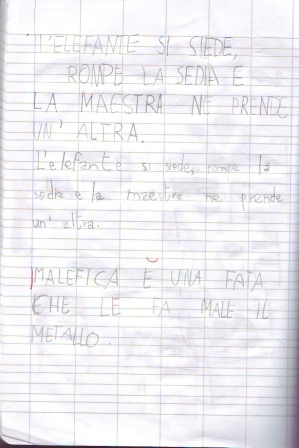 L'ELEFANTE SI SIEDE,
ROMPE LA SEDIA E
LA MAESTRA NE PRENDE
UN' ALTRA.
L'elefante si siede, rompe la
sedia e la maestra ne prende
un' altra.
MALEFICA È UNA FATA
CHE LE FA MALE IL
METALLO.